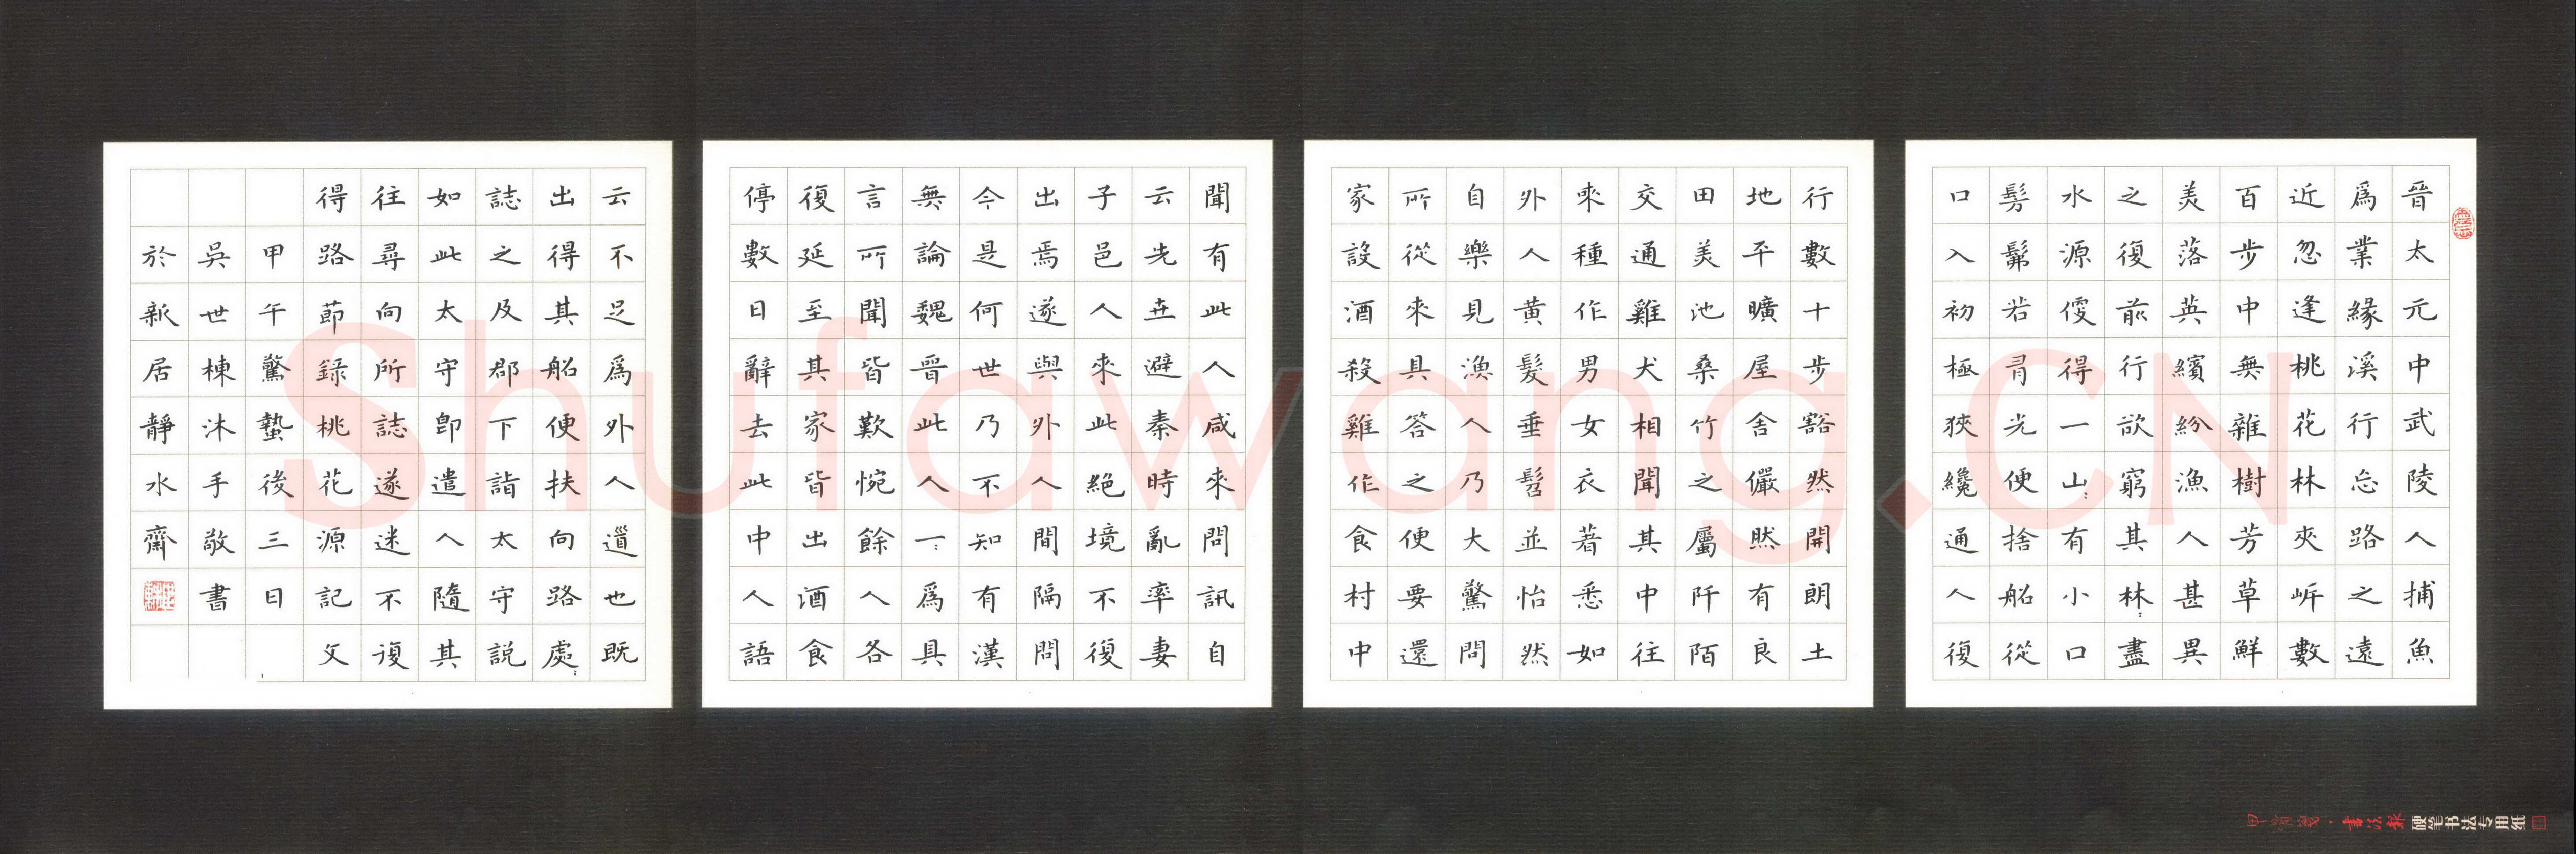 晉太元中武陵人捕魚
爲業緣溪行忘路之遠
近忽逢桃花林夾岍數
百步中無雜樹芳草鮮
美落英繽紛漁人甚異
之復前行欲窮其林〻盡
水源便得一山〻有小口
髣髴若有光便捨船從
口入初極狹纔通人復
行數十步豁然開朗土
地平曠屋舍儼然有良
田美池桑竹之屬阡陌
交通雞犬相聞其中往
來種作男女衣著悉如
外人黃髮垂髫並怡然
自樂見漁人乃大驚問
所從來具答之便要還
家設酒殺雞作食村中
聞有此人咸來問訊自
云先世避秦時亂率妻
子邑人來此絕境不復
出焉遂與外人間隔問
今是何世乃不知有漢
無論魏晉此人一〻爲具
言所聞皆歎惋餘人各
復延至其家皆出酒食
停數日辭去此中人語
云不足爲外人道也既
出得其船便扶向路處〻
誌之及郡下詣太守説
如此太守即遣人隨其
往尋向所誌遂迷不復
得路節録桃花源記文
甲午驚蟄後三日
吳世棟沐手敬書
於新居靜水齋
書法報 硬笔书法专用纸
Shufawang.CN